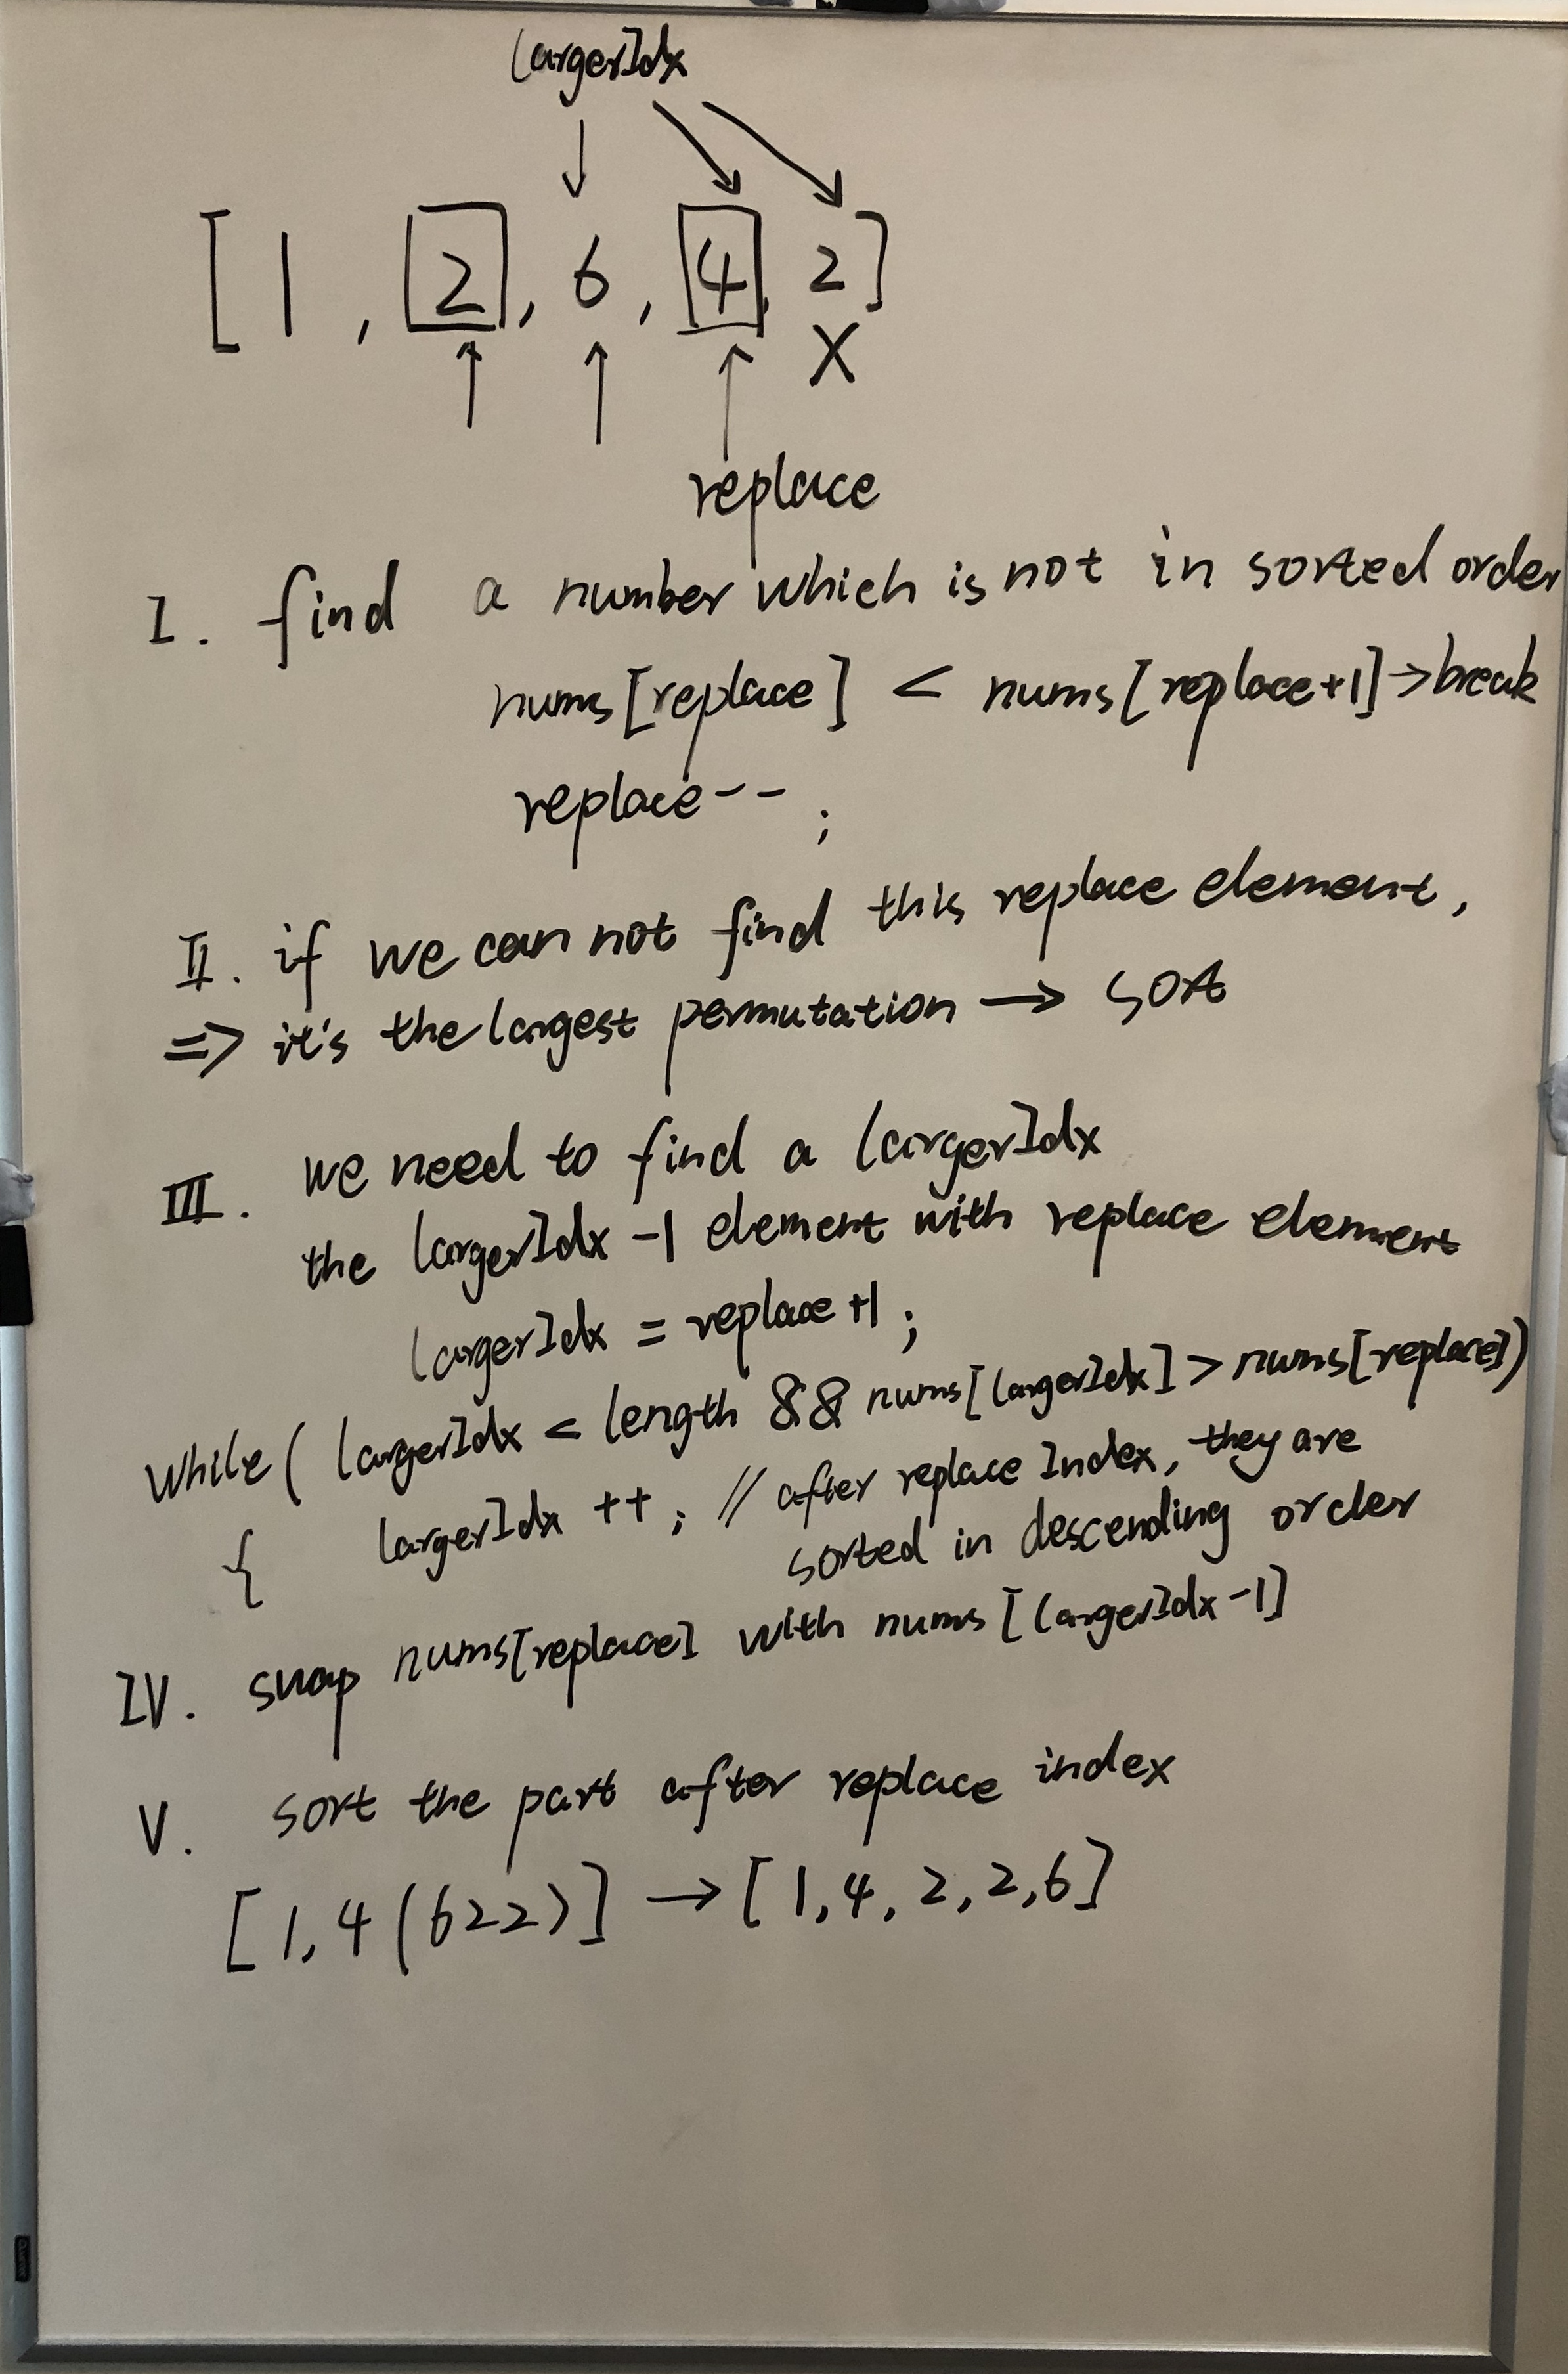 largerIdx
[ 1 , 2 , 6 , 4 , 2 ]
X
replace
I. find a number which is not in sorted order
nums[replace] < nums[replace+1] → break
replace-- ;
II. if we can not find this replace element,
=> it's the largest permutation → sort
III. we need to find a largerIdx
the largerIdx -1 element with replace element
largerIdx = replace +1 ;
while ( largerIdx < length && nums[largerIdx] > nums[replace])
{ largerIdx ++ ; // after replace Index, they are
sorted in descending order
IV. swap nums[replace] with nums[largerIdx-1]
V. sort the part after replace index
[ 1, 4 (622)] → [ 1, 4, 2, 2, 6]